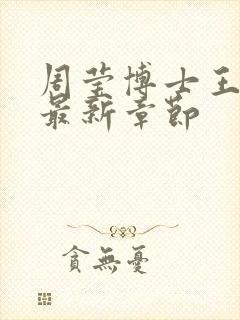 周莹博士王
最新章节
貪無憂